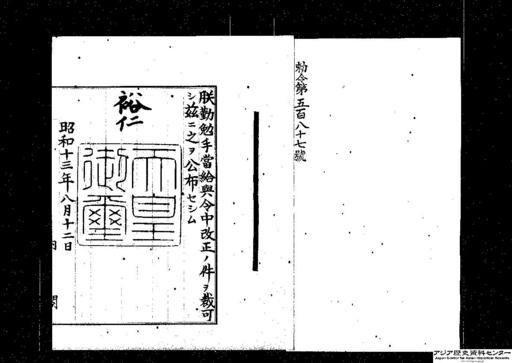 勅令第五百八十七號
朕勤勉手當給與令中改正ノ件ヲ裁可
シ茲ニ之ヲ公布セシム
裕仁
天皇
御璽
昭和十三年八月十二日
内閣
アジア歴史資料センター
Japan Center for Asian Historical Records